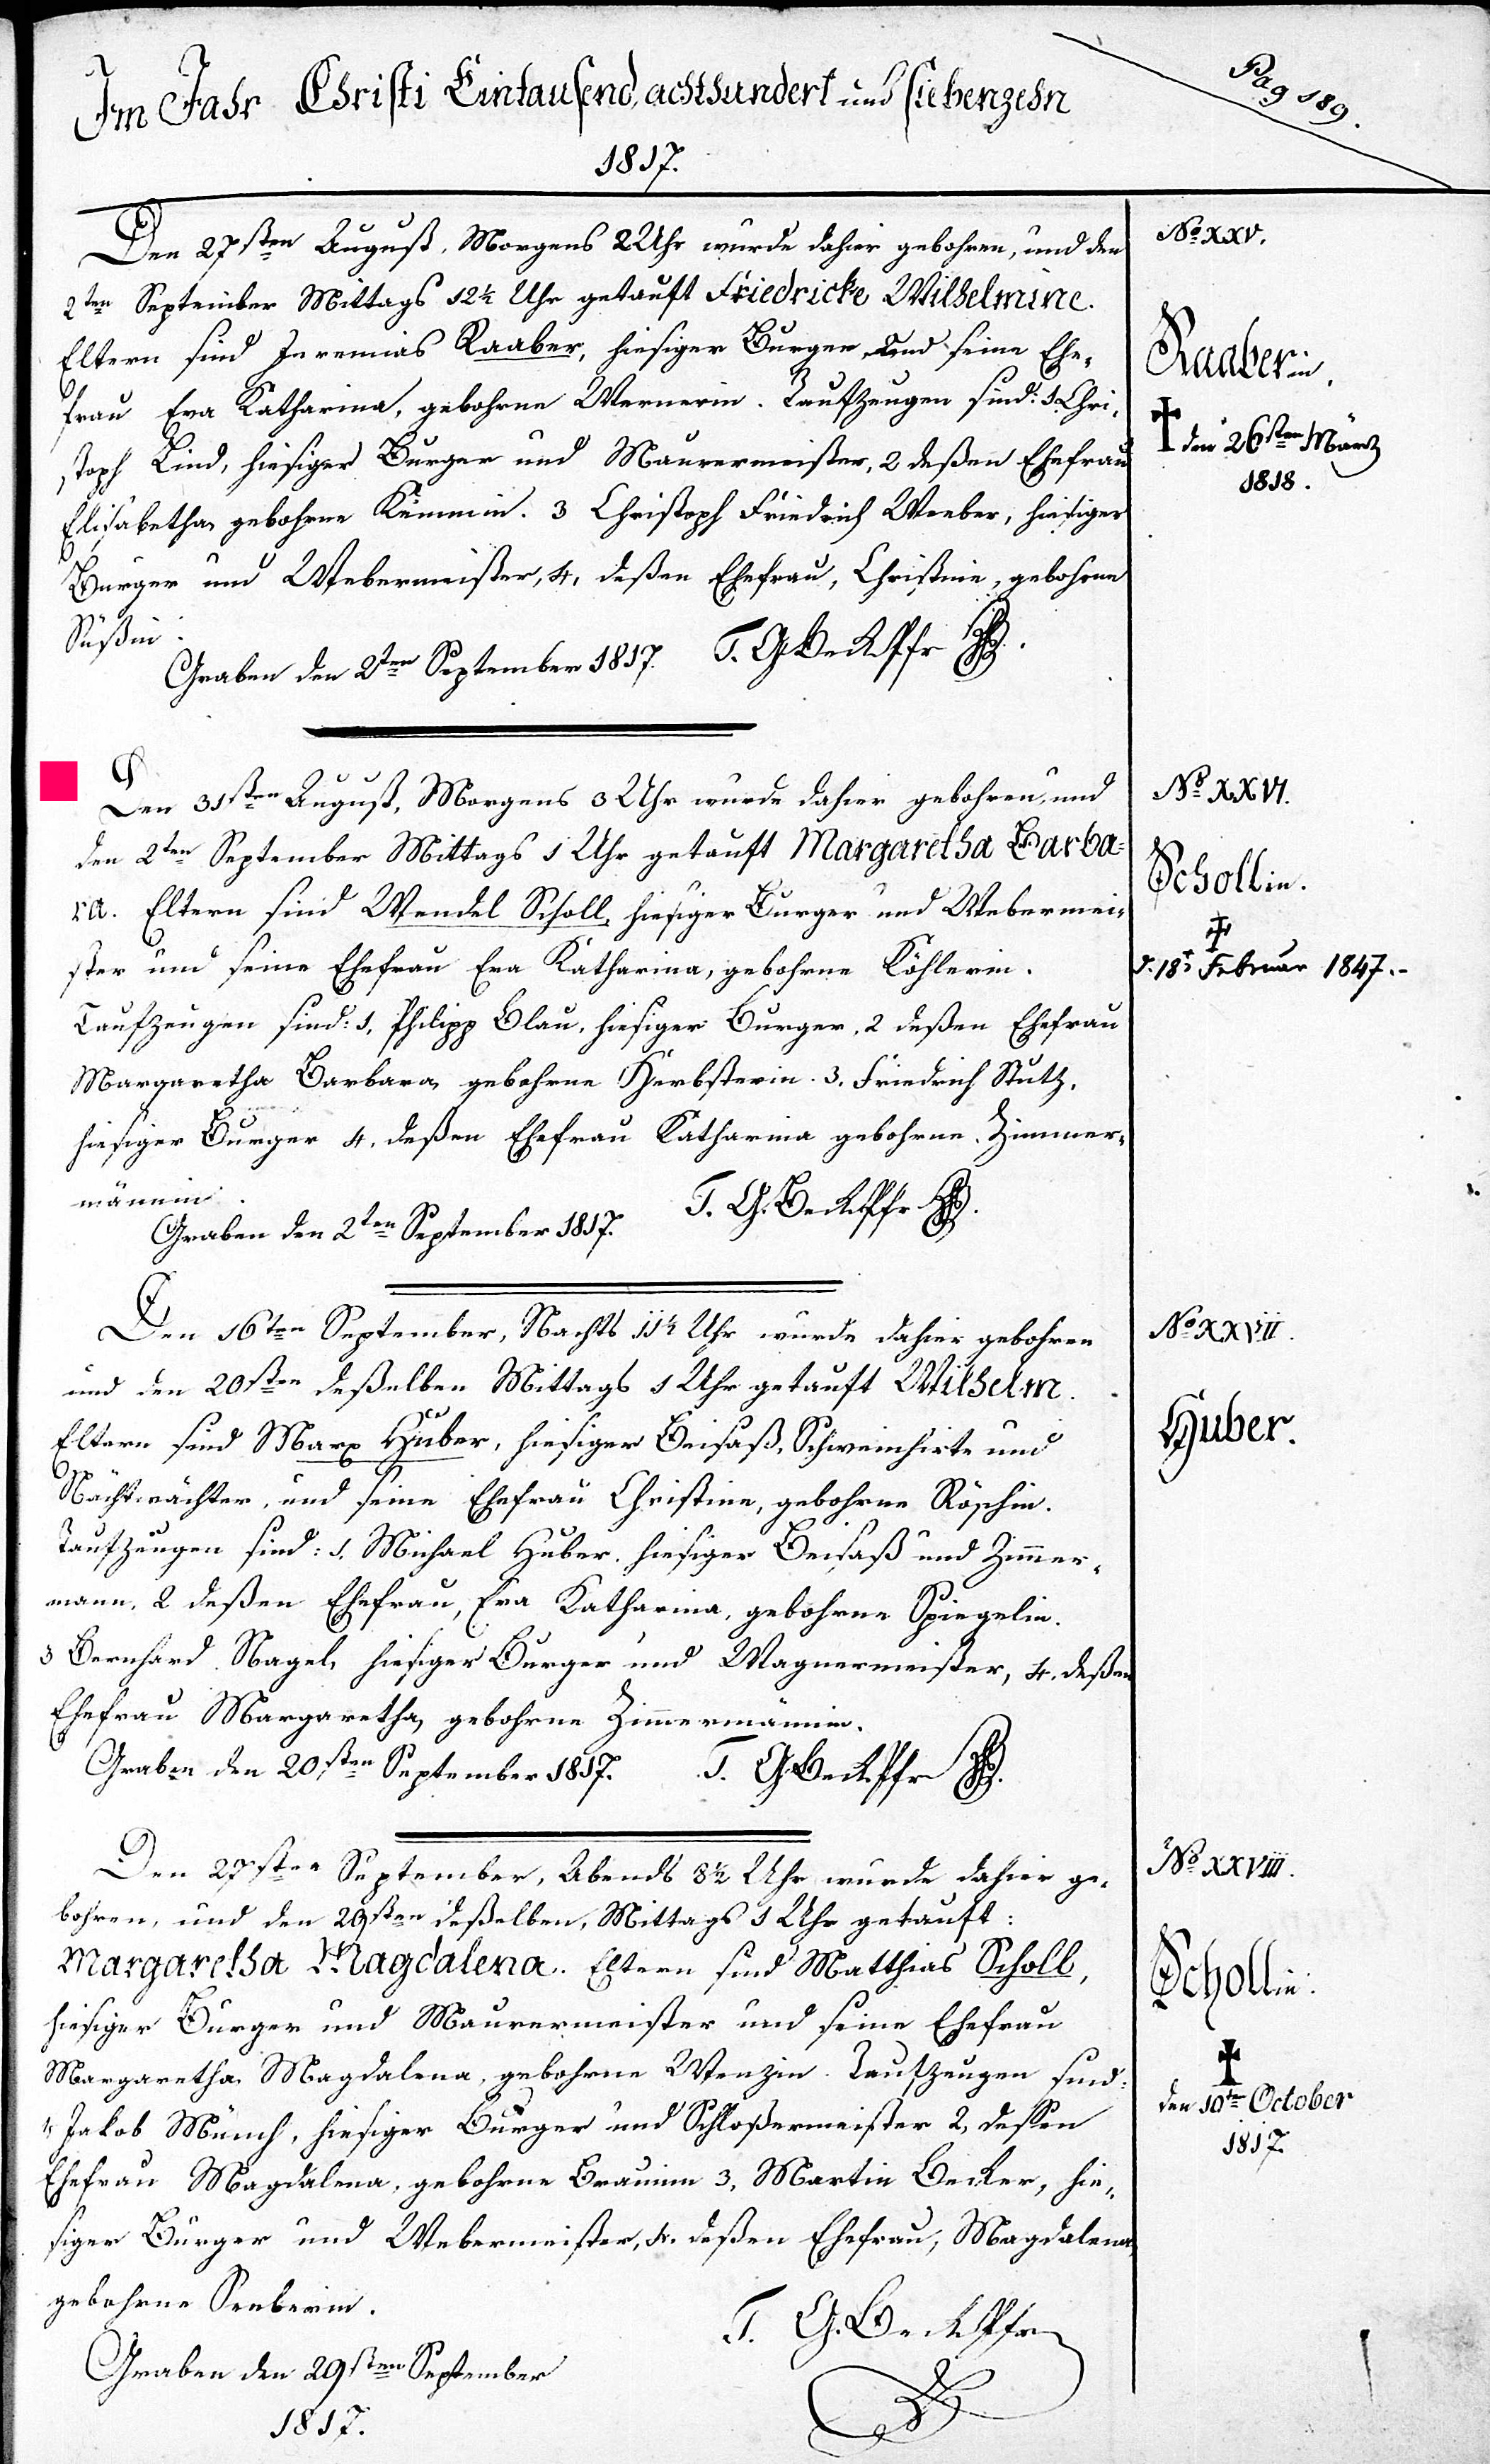 Pag 189.
Im Jahr Christi Eintausend, achthundert und siebenzehn
1817.
Den 27sten August, Morgens 2 Uhr wurde dahier gebohren, und den
2ten September Mittags 12½ Uhr getauft Friedricke Wilhelmine.
Eltern sind Jeremias Raaber, hiesiger Burger und seine Ehe-
frau Eva Katharina, gebohrne Wernerin. Taufzeugen sind: 1. Chri-
stoph Lind, hiesiger Burger und Maurermeister, 2 deßen Ehefrau
Elisabetha, gebohrne Kemmin. 3 Christoph Friedrich Weeber, hiesiger
Burger und Webermeister, 4, deßen Ehefrau, Christine, gebohrne
Süßin.
Graben den 2ten September 1817. T. G. Beck Pfr
No XXV.
Raaberin.
† den 26sten März
1818.
Den 31sten August, Morgens 3 Uhr wurde dahier gebohren, und
den 2ten September Mittags 1 Uhr getauft Margaretha Barba=
ra. Eltern sind Wendel Scholl, hiesiger Burger und Webermei-
ster und seine Ehefrau Eva Katharina, gebohrne Köhlerin.
Taufzeugen sind: 1, Philipp Blau, hiesiger Burger, 2 deßen Ehefrau
Margaretha Barbara, gebohrne Herbsterin. 3. Friedrich Stutz,
hiesiger Burger 4, deßen Ehefrau Katharina gebohrne Zimmer-
männin.
Graben den 2ten September 1817. T. G. Beck Pfr
No XXVI.
Schollin.
†
d. 18t Februar 1847.-
Den 16ten September, Nachts 11½ Uhr wurde dahier gebohren
und den 20sten deßelben Mittags 1 Uhr getauft Wilhelm.
Eltern sind Marx Huber, hiesiger Beisaß, Schweinhirte und
Nachtwächter, und seine Ehefrau Christine, gebohrne Röschin.
Taufzeugen sind: 1. Michael Huber, hiesiger Beisaß und Zimmer-
mann, 2 deßen Ehefrau, Eva Katharina, gebohrne Spiegelin.
3 Bernhard Nagel, hiesiger Burger und Wagnermeister, 4, deßen
Ehefrau Margaretha, gebohrne Zimmermännin.
Graben den 20sten September 1817. T. G. Beck Pfr
No XXVII.
Huber.
Den 27sten September, Abends 8½ Uhr wurde dahier ge-
bohren, und den 29sten deßelben, Mittags 1 Uhr getauft:
Margaretha Magdalena. Eltern sind Matthias Scholl,
hiesiger Burger und Maurermeister und seine Ehefrau
Margaretha Magdalena, gebohrne Wenzin. Taufzeugen sind:
1, Jakob Münch, hiesiger Burger und Schloßermeister 2, dessen
Ehefrau Magdalena, gebohrne Braunin 3, Martin Becker, hie-
siger Burger und Webermeister, 4. deßen Ehefrau, Magdalena,
gebohrne Seeberin.
Graben den 29sten September
1817.
T. G. Beck Pfr
No XXVIII.
Schollin.
†
den 10ten October
1817